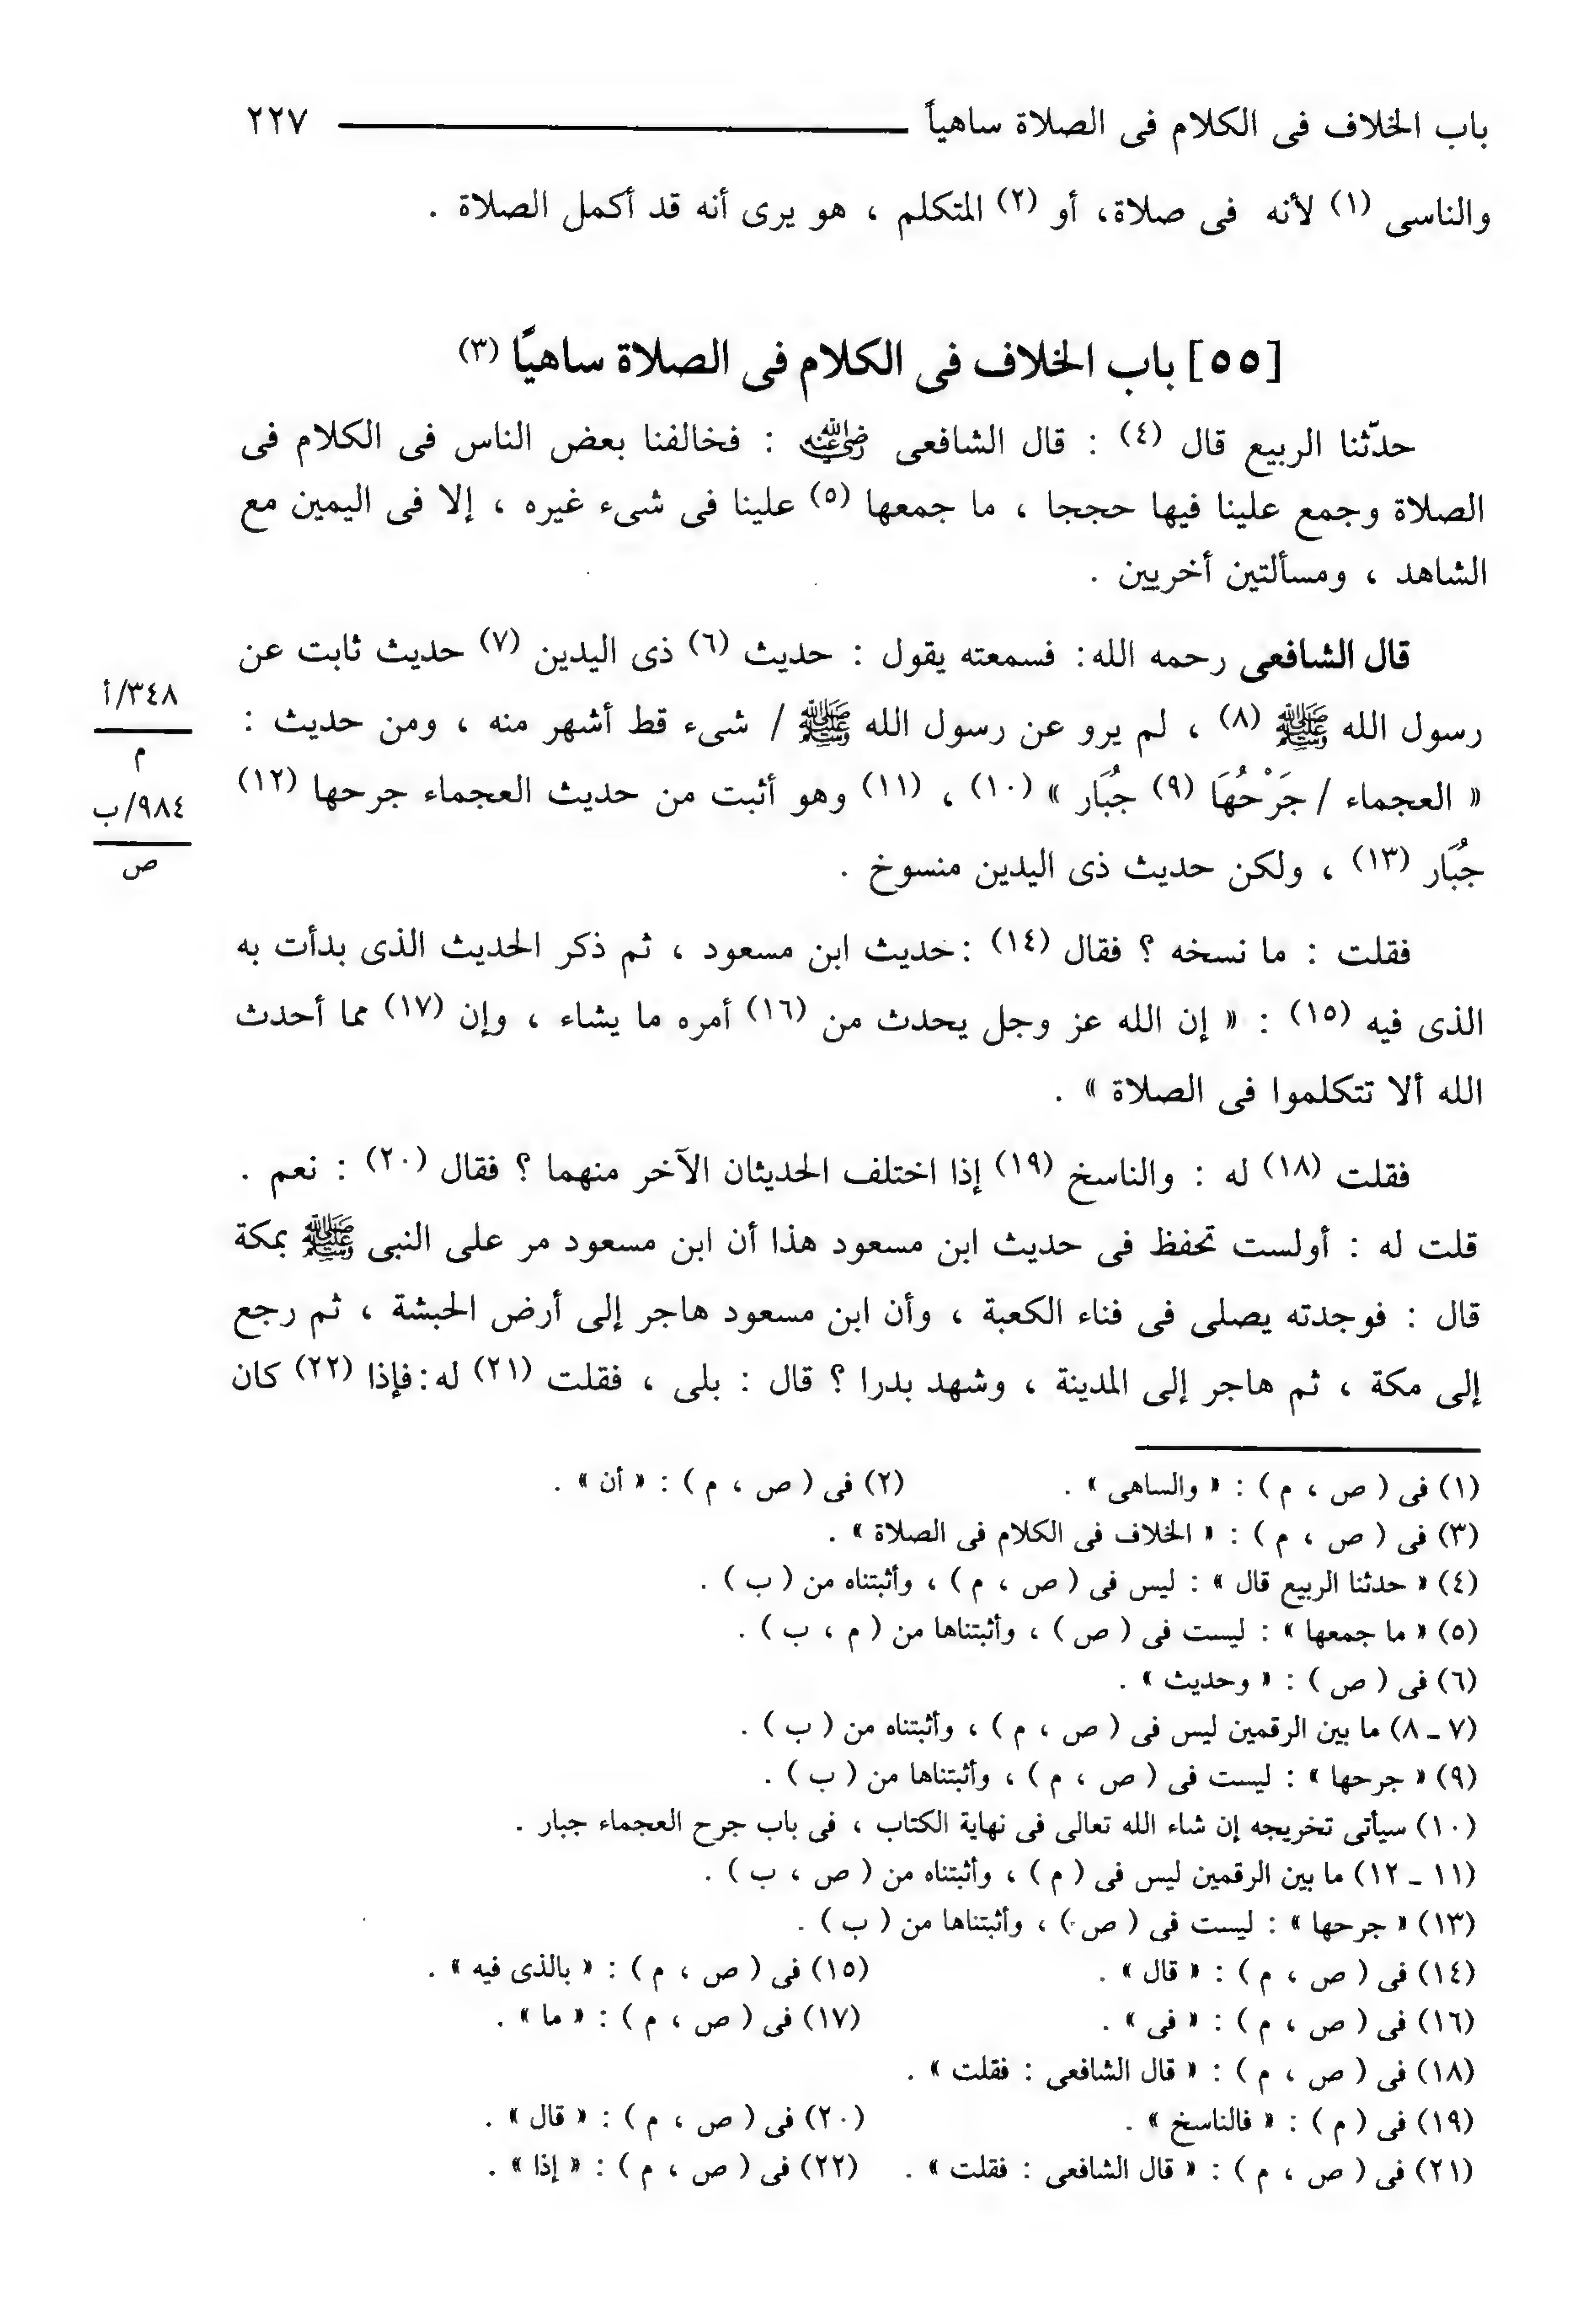 باب الخلاف فى الكلام فى الصلاة ساهياً ٢٢٧
والناسى (١) لأنه فى صلاة، أو (٢) المتكلم ، هو يرى أنه قد أكمل الصلاة .
[٥٥] باب الخلاف فى الكلام فى الصلاة ساهيًا (٣)
حدّثنا الربيع قال (٤) : قال الشافعى رضي الله عنه : فخالفنا بعض الناس فى الكلام فى
الصلاة وجمع علينا فيها حججا ، ما جمعها (٥) علينا فى شىء غيره ، إلا فى اليمين مع
الشاهد ، ومسألتين أخريين .
قال الشافعى رحمه الله: فسمعته يقول : حديث (٦) ذى اليدين (٧) حديث ثابت عن
رسول الله ﷺ (٨) ، لم يرو عن رسول الله ﷺ / شىء قط أشهر منه ، ومن حديث :
« العجماء / جَرْحُهَا (٩) جُبَار » (١٠) ، (١١) وهو أثبت من حديث العجماء جرحها (١٢)
جُبَار (١٣) ، ولكن حديث ذى اليدين منسوخ .
٣٤٨/أ
م
٩٨٤/ب
ص
فقلت : ما نسخه ؟ فقال (١٤) :حديث ابن مسعود ، ثم ذكر الحديث الذى بدأت به
الذى فيه (١٥) : « إن الله عز وجل يحدث من (١٦) أمره ما يشاء ، وإن (١٧) مما أحدث
الله ألا تتكلموا فى الصلاة » .
فقلت (١٨) له : والناسخ (١٩) إذا اختلف الحديثان الآخر منهما ؟ فقال (٢٠) : نعم .
قلت له : أولست تحفظ فى حديث ابن مسعود هذا أن ابن مسعود مر على النبى ﷺ بمكة
قال : فوجدته يصلى فى فناء الكعبة ، وأن ابن مسعود هاجر إلى أرض الحبشة ، ثم رجع
إلى مكة ، ثم هاجر إلى المدينة ، وشهد بدرا ؟ قال : بلى ، فقلت (٢١) له :فإذا (٢٢) كان
(١) فى ( ص ، م ) : « والساهى » . (٢) فى ( ص ، م ) : « أن » .
(٣) فى ( ص ، م ) : « الخلاف فى الكلام فى الصلاة » .
(٤) « حدثنا الربيع قال » : ليس فى ( ص ، م ) ، وأثبتناه من ( ب ) .
(٥) « ما جمعها » : ليست فى ( ص ) ، وأثبتناها من ( م ، ب ) .
(٦) فى ( ص ) : « وحديث » .
(٧ ـ ٨) ما بين الرقمين ليس فى ( ص ، م ) ، وأثبتناه من ( ب ) .
(٩) « جرحها » : ليست فى ( ص ، م ) ، وأثبتناها من ( ب ) .
(١٠) سيأتى تخريجه إن شاء الله تعالى فى نهاية الكتاب ، فى باب جرح العجماء جبار .
(١١ ـ ١٢) ما بين الرقمين ليس فى ( م ) ، وأثبتناه من ( ص ، ب ) .
(١٣) « جرحها » : ليست فى ( ص ) ، وأثبتناها من ( ب ) .
(١٤) فى ( ص ، م ) : « قال » . (١٥) فى ( ص ، م ) : « بالذى فيه » .
(١٦) فى ( ص ، م ) : « فى » . (١٧) فى ( ص ، م ) : « ما » .
(١٨) فى ( ص ، م ) : « قال الشافعى : فقلت » .
(١٩) فى ( م ) : « فالناسخ » . (٢٠) فى ( ص ، م ) : « قال » .
(٢١) فى ( ص ، م ) : « قال الشافعى : فقلت » . (٢٢) فى ( ص ، م ) : « إذا » .